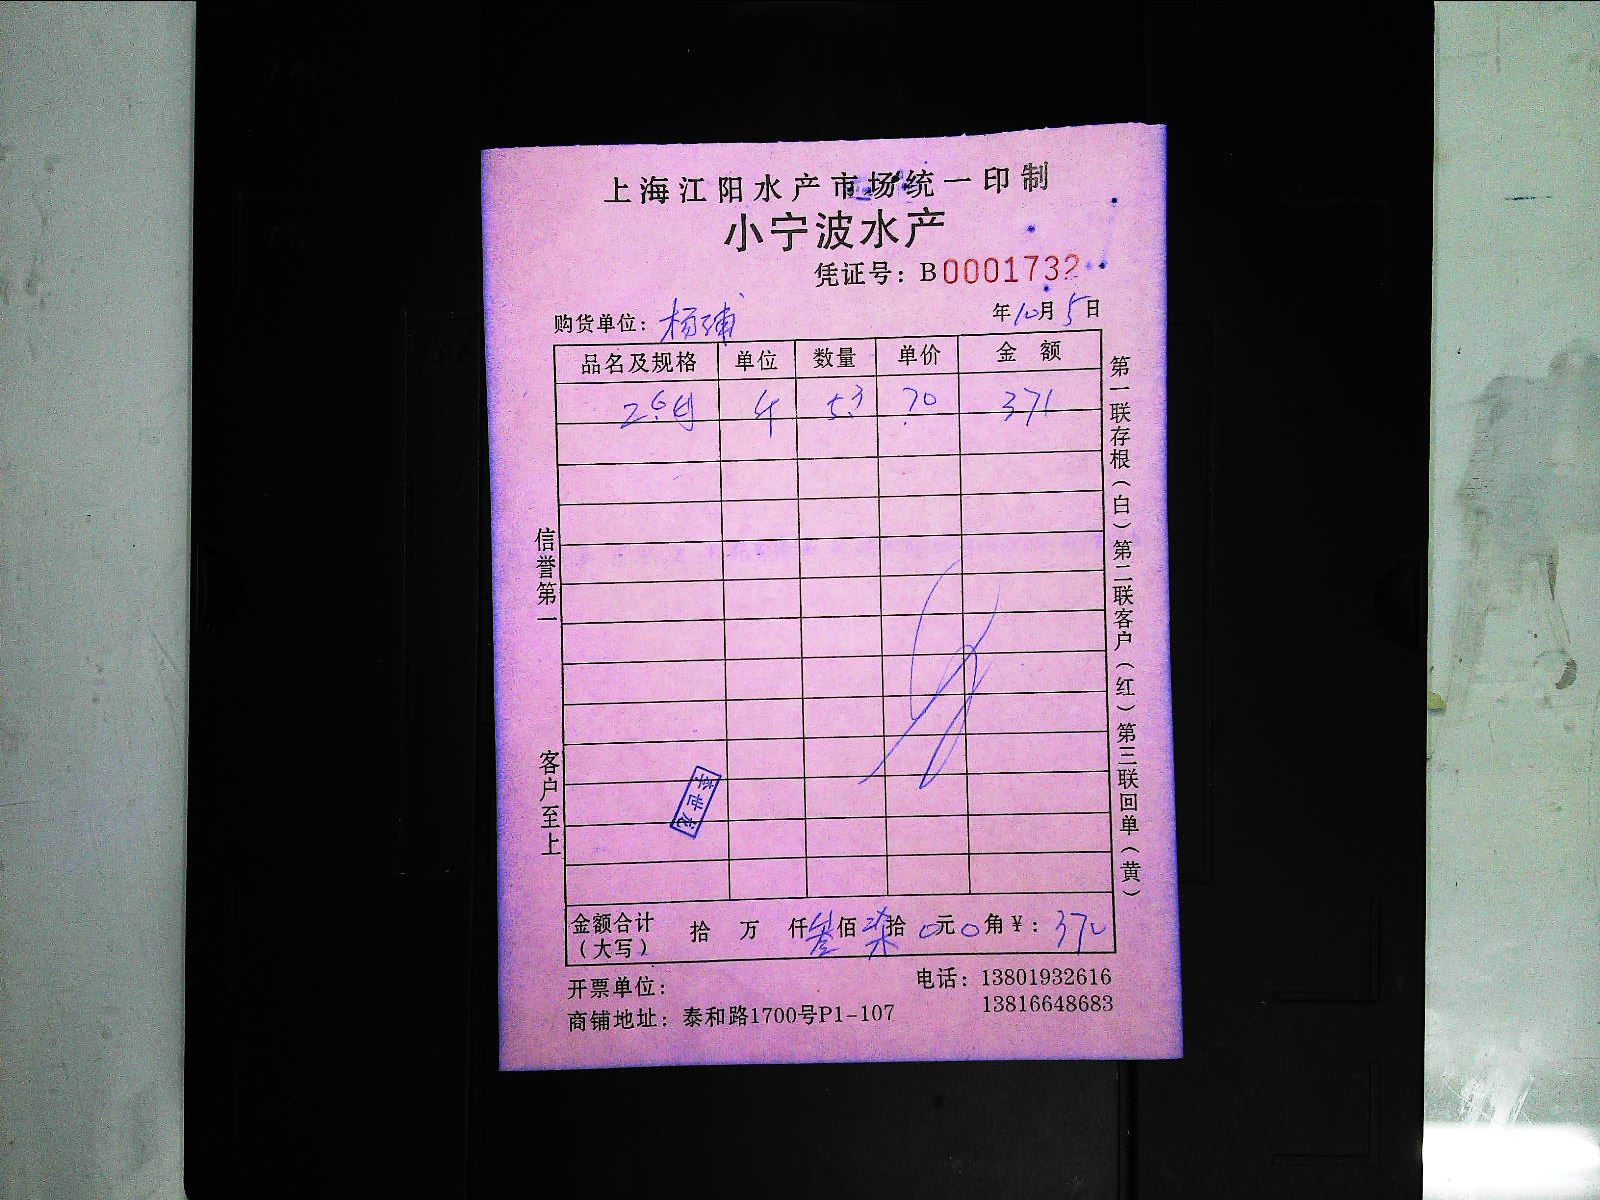 上海江阳水产市场统一印制
小宁波水产
凭证号：B0001732
购货单位：杨浦 年10月5日
品名及规格 单位 数量 单价 金额
5.3 70 371
信誉第一
客户至上
第一联存根（白）第二联客户（红）第三联回单（黄）
金额合计（大写） 拾 万 仟叁佰柒拾0元0角￥：370
开票单位： 电话：13801932616
13816648683
商铺地址：泰和路1700号P1-107